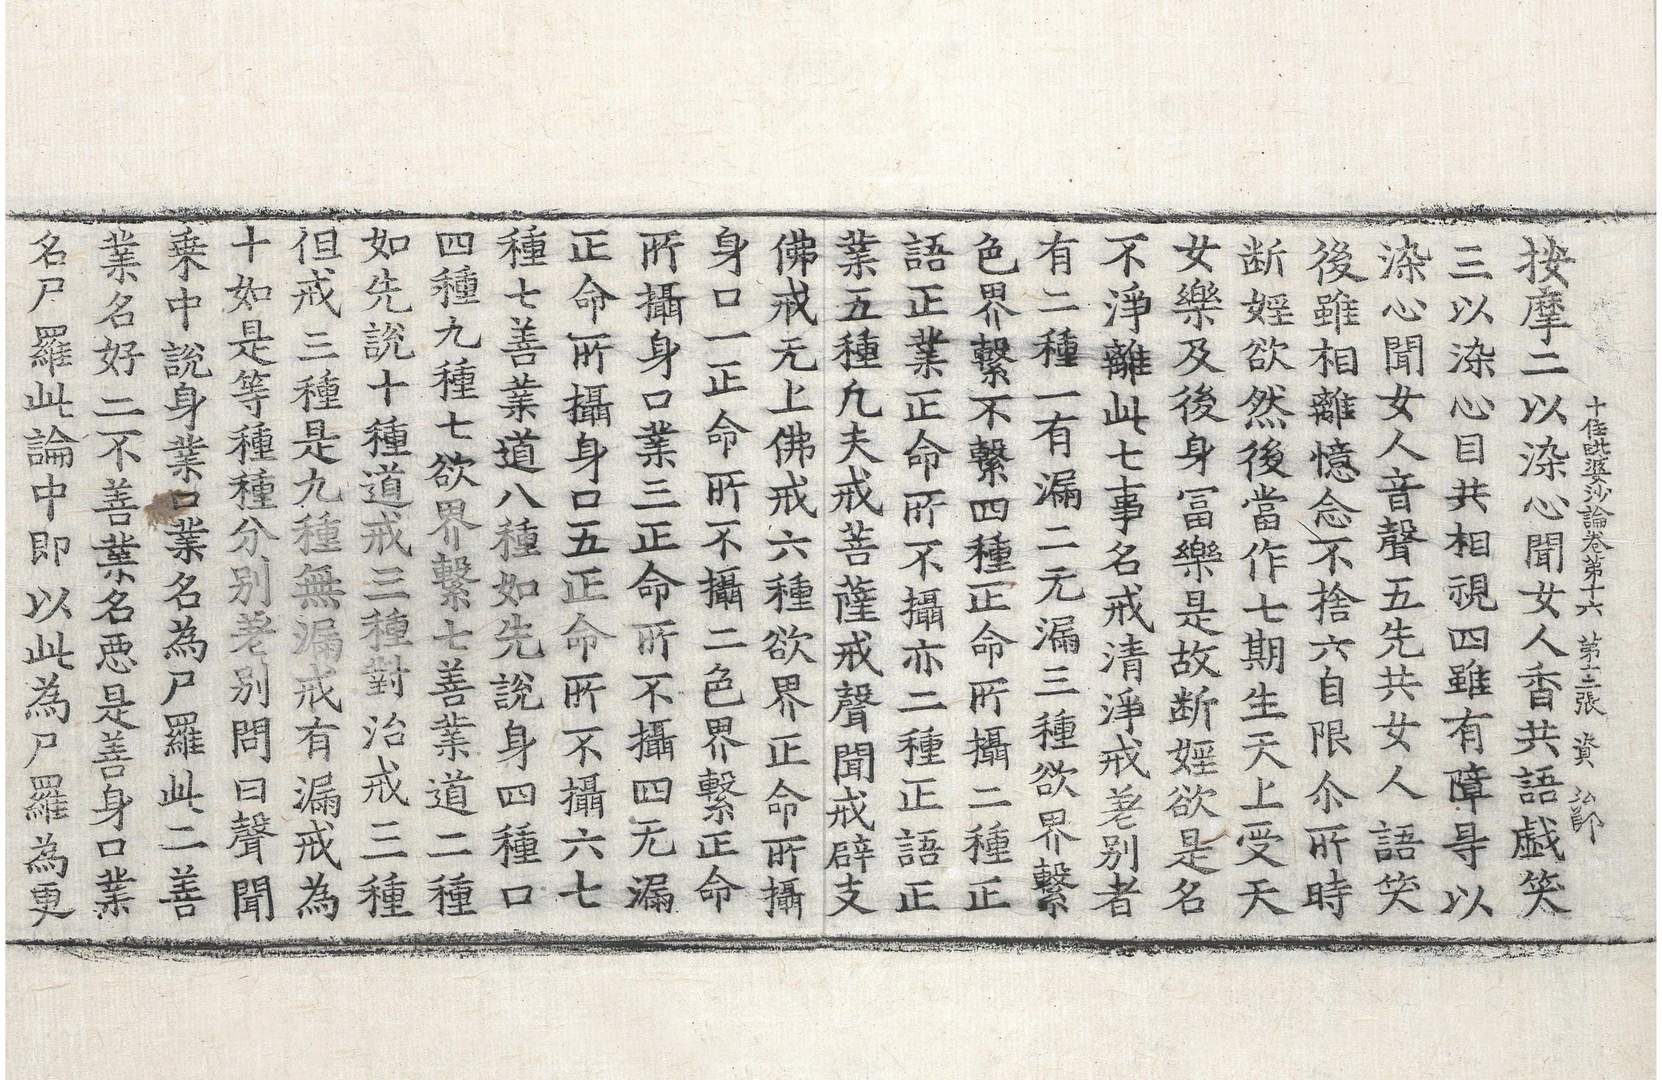 十住毗婆沙論卷第十六 第十二張 資 弘郎
按摩二以染心聞女人香共語戲笑
三以染心目共相視四雖有障㝵以
染心聞女人音聲五先共女人語笑
後雖相離憶念不捨六自限尒所時
断婬欲然後當作七期生天上受天
女樂及後身冨樂是故断婬欲是名
不淨離此七事名戒清淨戒差别者
有二種一有漏二无漏三種欲界繫
色界繫不繫四種正命所攝二種正
語正業正命所不攝亦二種正語正
業五種凡夫戒菩薩戒聲聞戒辟支
佛戒无上佛戒六種欲界正命所攝
身口一正命所不攝二色界繫正命
所攝身口業三正命所不攝四无漏
正命所攝身口五正命所不攝六七
種七善業道八種如先說身四種口
四種九種七欲界繫七善業道二種
如先說十種道戒三種對治戒三種
但戒三種是九種無漏戒有漏戒為
十如是等種種分别差别問曰聲聞
乗中說身業口業名為尸羅此二善
業名好二不善業名惡是善身口業
名尸羅此論中即以此為尸羅為更